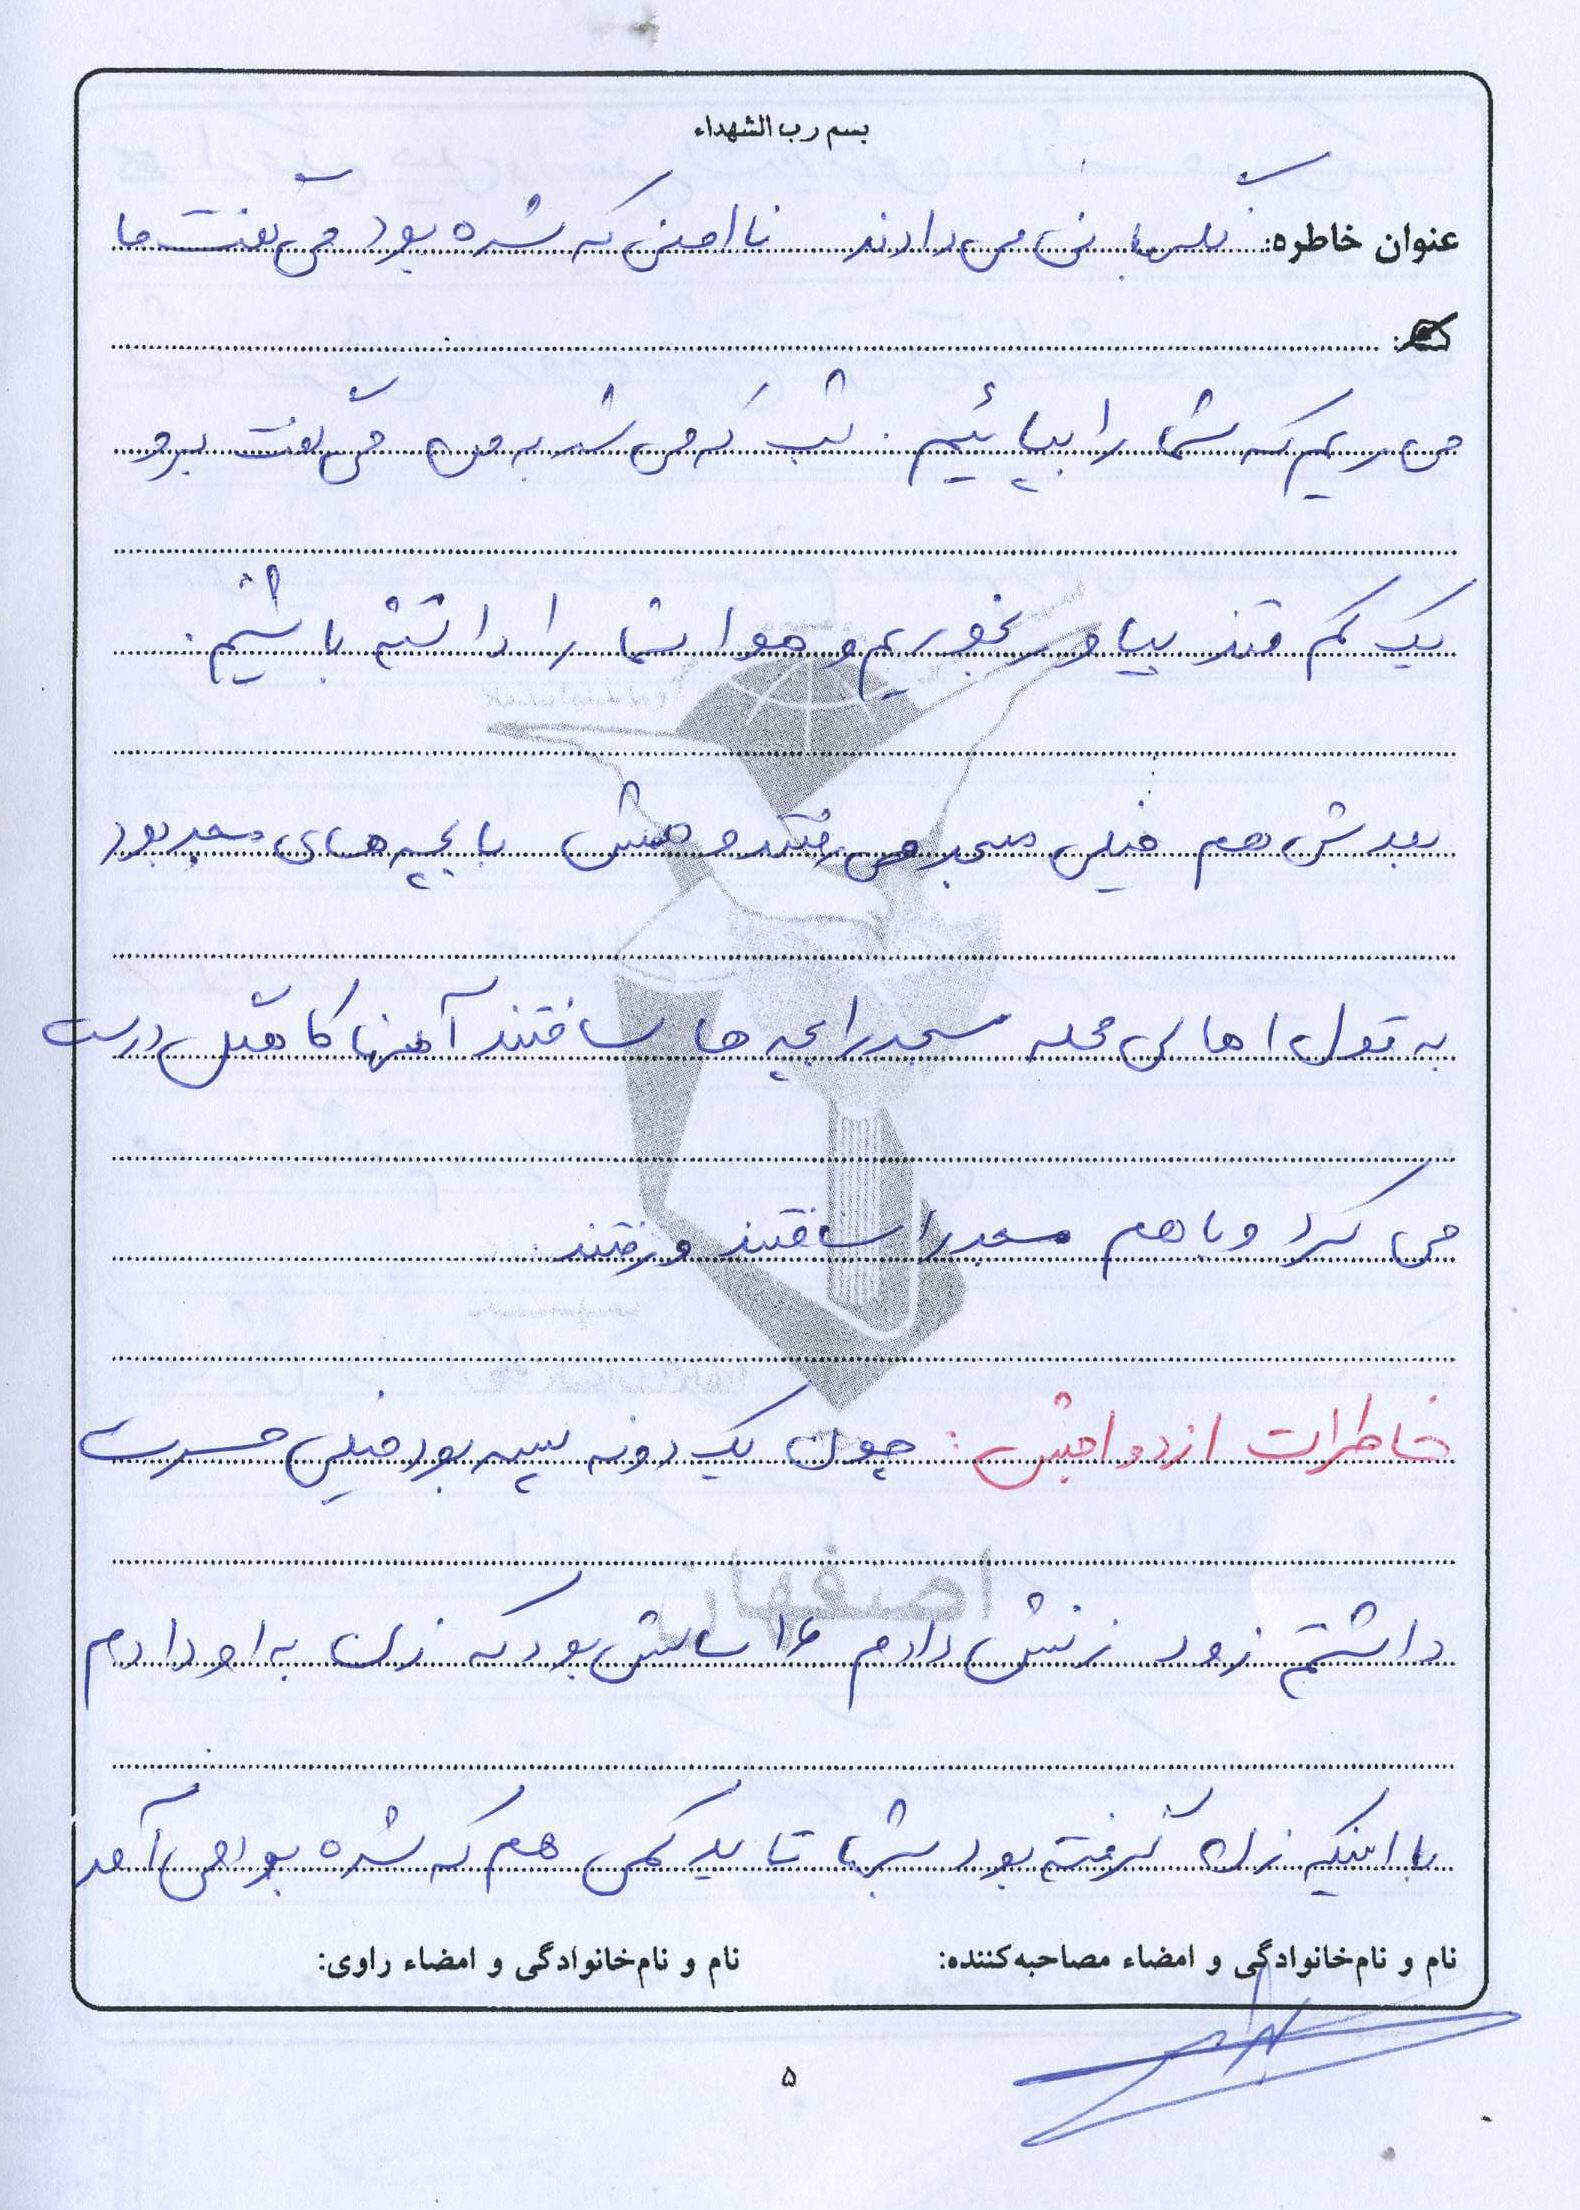 بسم رب الشهداء
عنوان خاطره: نگهبانی می دادند ناامنی که شده بود می گفت ما
می ریم که شما را بپائیم. شب که می شد به من می گفت برو
یک کم قند بیاور بخوریم و هوا شما را داشته باشیم.
بعدش هم خیلی مسجد می رفتند و همش با بچه های مسجد بود
به قول اهالی محله مسجد را بچه ها ساختند آنها کاهگل درست
می کرد و با هم مسجد را ساختند و رفتند
خاطرات ازدواجش: چون یک دونه پسر بود خیلی حسرت
داشتم زود زنش دادم ۱۶ سالش بود که زن به او دادم
با اینکه زن گرفته بود شبها شاید کمی هم که شده بود می آمد
نام و نام‌خانوادگی و امضاء مصاحبه‌کننده: نام و نام‌خانوادگی و امضاء راوی:
اصفهان
۵